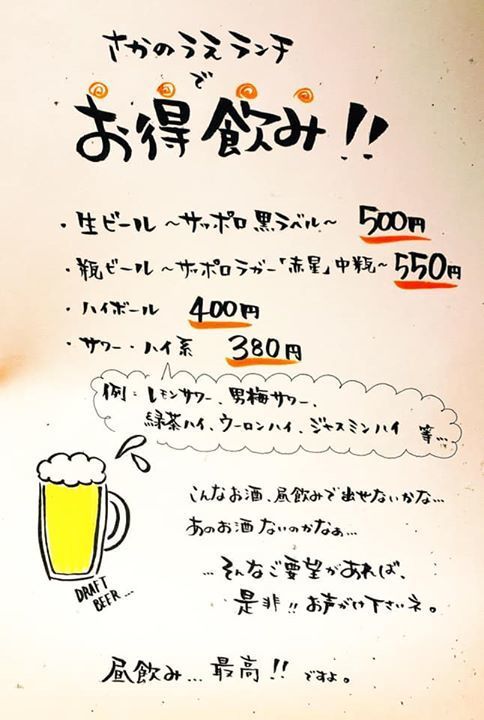 さかのうえランチ
で
お得飲み!!
・生ビール ～サッポロ黒ラベル～ 500円
・瓶ビール ～サッポロラガー「赤星」中瓶～ 550円
・ハイボール 400円
・サワー・ハイ系 380円
例：レモンサワー、男梅サワー、
緑茶ハイ、ウーロンハイ、ジャスミンハイ 等…
こんなお酒、昼飲みで出せないかな…
あのお酒ないのかなぁ…
…そんなご要望があれば、
是非!! お声がけ下さいネ。
DRAFT
BEER...
昼飲み…最高!! ですよ。